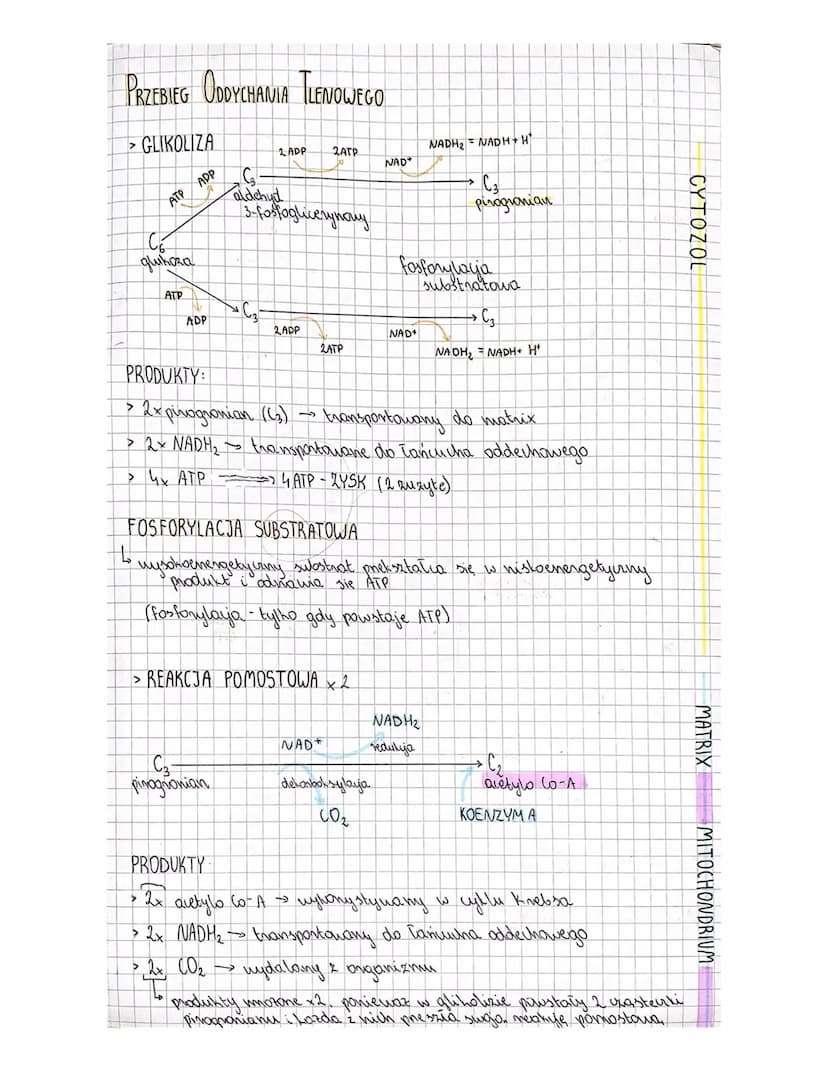 PRZEBIEG ODDYCHANIA TLENOWEGO
> GLIKOLIZA
2ADP 2ATP NAD⁺ NADH₂ = NADH + H⁺
ATP ADP C₃ C₃
aldehyd pirogronian
3-fosfoglicerynowy
C₆
glukoza
fosforylacja
substratowa
ATP ADP C₃ C₃
2ADP 2ATP NAD⁺ NADH₂ = NADH + H⁺
CYTOZOL
PRODUKTY:
> 2x pirogronian (C₃) → transportowany do matrix
> 2x NADH₂ → transportowane do łańcucha oddechowego
> 4x ATP → 4ATP - ZYSK (2 zużyte)
FOSFORYLACJA SUBSTRATOWA
↳ wysokoenergetyczny substrat przekształca się w niskoenergetyczny
produkt i odnawia się ATP
(fosforylacja - tylko gdy powstaje ATP)
> REAKCJA POMOSTOWA x2
NADH₂
NAD⁺ redukcja
C₃ C₂
pirogronian dekarboksylacja acetylo Co-A
CO₂ KOENZYM A
MATRIX MITOCHONDRIUM
PRODUKTY
> 2x acetylo Co-A → wykorzystywany w cyklu Krebsa
> 2x NADH₂ → transportowany do łańcucha oddechowego
> 2x CO₂ → wydalany z organizmu
↳ produkty mnożone x2, ponieważ w glikolizie powstały 2 cząsteczki
pirogronianu i każda z nich przeszła swoją reakcję pomostową